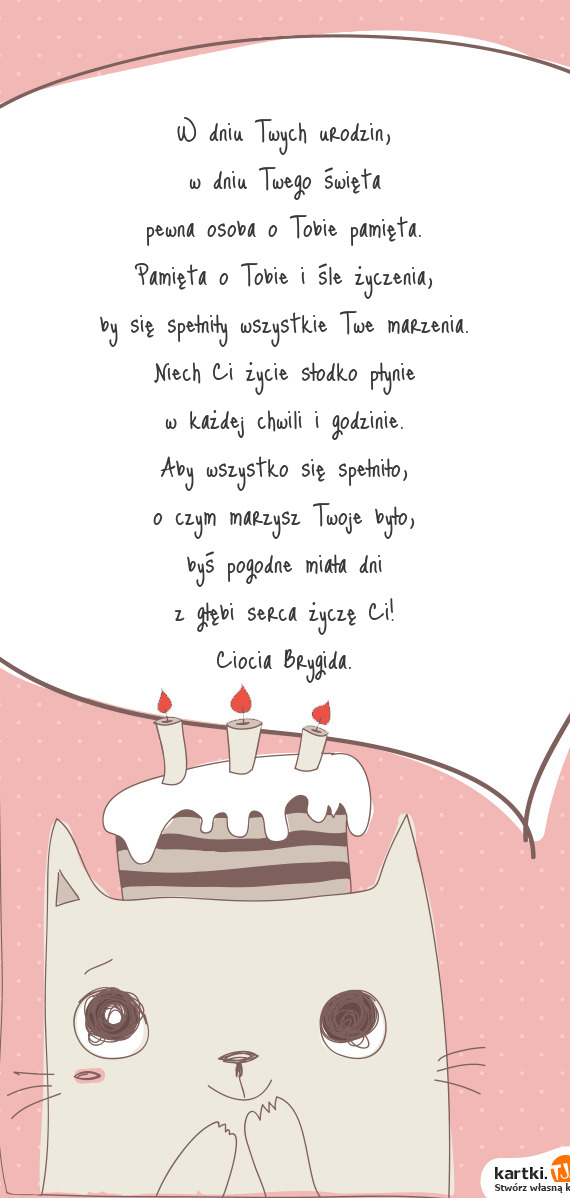 W dniu Twych urodzin,
w dniu Twego święta
pewna osoba o Tobie pamięta.
Pamięta o Tobie i śle życzenia,
by się spełniły wszystkie Twe marzenia.
Niech Ci życie słodko płynie
w każdej chwili i godzinie.
Aby wszystko się spełniło,
o czym marzysz Twoje było,
byś pogodne miała dni
z głębi serca życzę Ci!
Ciocia Brygida.
kartki.TJ
Stwórz własną k